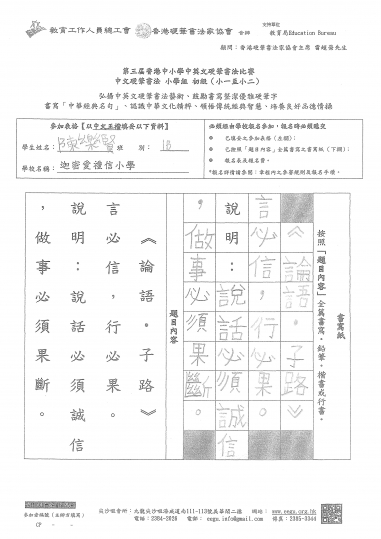 教育工作人員總工會 香港硬筆書法家協會 合辦
支持單位
教育局Education Bureau
顧問：香港硬筆書法家協會主席 曾錦張先生
第三屆香港中小學中英文硬筆書法比賽
中文硬筆書法 小學組 初級（小一至小二）
弘揚中英文硬筆書法藝術、鼓勵書寫潔淨雅硬筆字
書寫「中華經典名句」、認識中華文化精粹、領悟傳統經典智慧、培養良好品德情操
參加表格【以中文正楷填妥以下資料】
學生姓名：陳樂賢 班別：1B
學校名稱：迦密愛禮信小學
必須經由學校報名參加，報名時必須遞交
已填妥之參加表格（左圖）；
已按照「題目內容」全篇書寫之書寫紙（下圖）；
報名表及報名費。
*報名詳情請參閱：章程內之參賽規則及報名手續。
書寫紙
按照「題目內容」全篇書寫。鉛筆，楷書或行書。
《論語。子路》
言必信，行必果。
說明：說話必須誠信
，做事必須果斷。
題目內容
《論語。子路》
言必信，行必果。
說明：說話必須誠信
，做事必須果斷。
參加者編號（主辦方填寫）
CP - -
尖沙咀會所：九龍尖沙咀漆咸道南111-113號其華閣二樓 網址：www.eegu.org.hk
電話：2384-2028 電郵：eegu.info@gmail.com 傳真：2385-3344